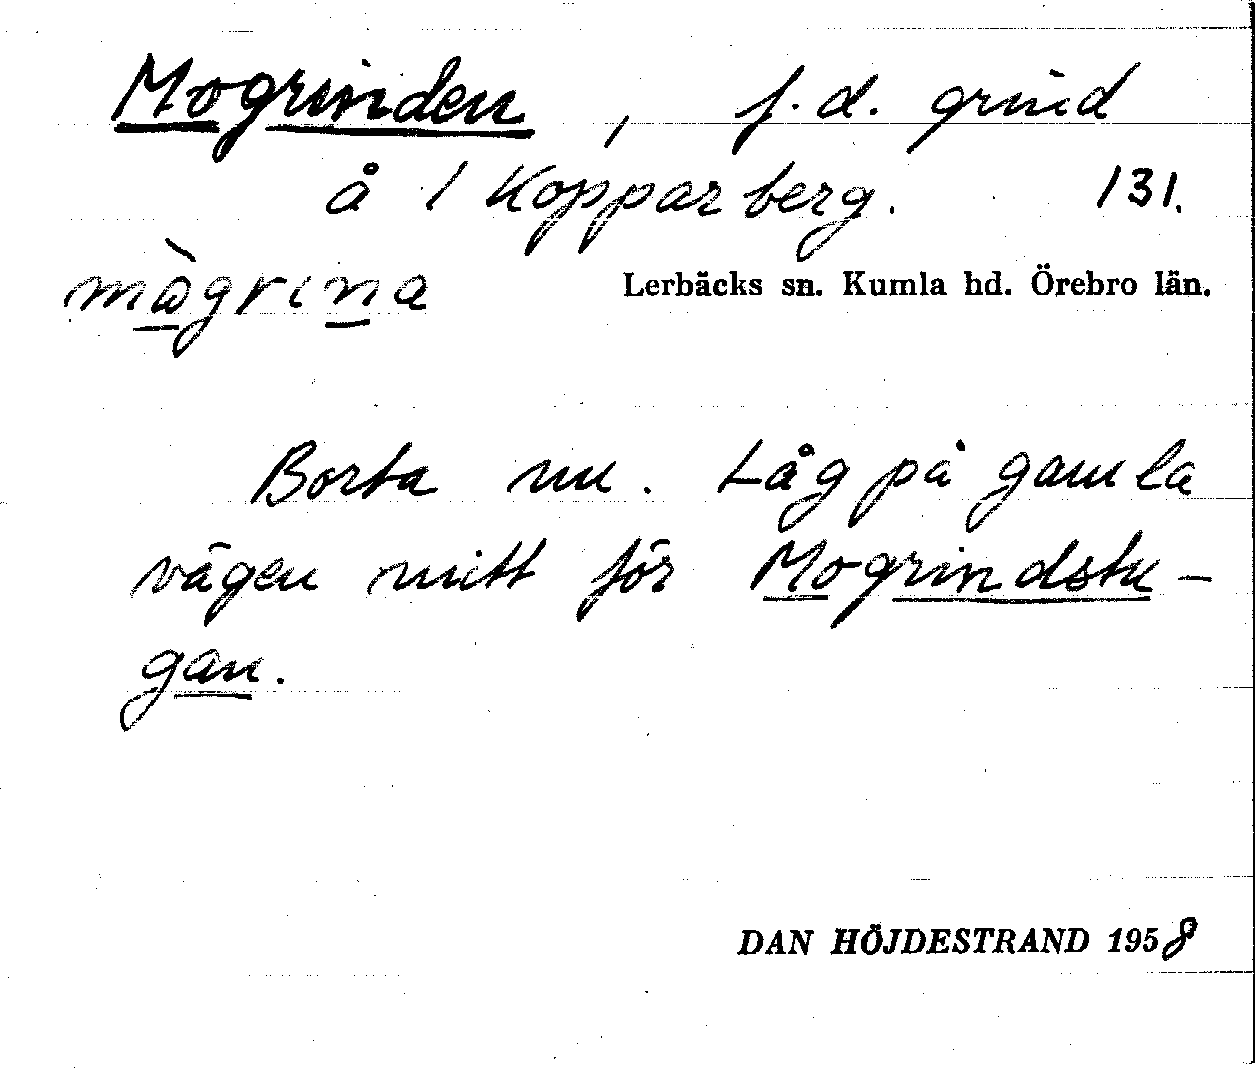 Mogrinden, f.d. grind
å 1 Kopparberg. 131.
mògrina Lerbäcks sn. Kumla hd. Örebro län.
Borta nu. Låg på gamla
vägen mitt för Mogrindstu-
gan.
DAN HÖJDESTRAND 1958